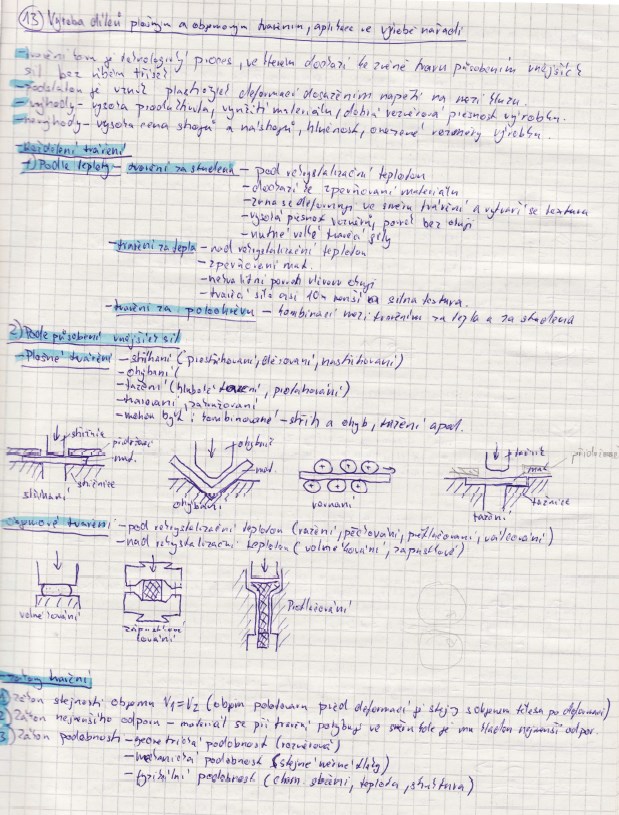 13) Výroba dílů plošným a objemovým tvářením, aplikace ve výrobě nářadí
- tváření kovů je technologický proces, ve kterém dochází ke změně tvaru působením vnějších
sil bez úběru třísek
- podstatou je vznik plastických deformací dosažením napětí na mezi kluzu.
- výhody - vysoká produktivita, využití materiálu, dobrá rozměrová přesnost výrobku.
- nevýhody - vysoká cena strojů a nástrojů, hlučnost, omezené rozměry výrobku.
- Rozdělení tváření
1) Podle teploty - tváření za studena - pod rekrystalizační teplotou
- dochází ke zpevňování materiálu
- zrna se deformují ve směru tváření a vytváří se textura
- vysoká přesnost rozměrů, povrch bez okují
- nutné velké tvářecí síly
- tváření za tepla - nad rekrystalizační teplotou
- zpevňování mat.
- nekvalitní povrch vlivem okují
- tvářecí síla asi 10x menší
- tváření za poloohřevu - kombinací mezi tvářením za tepla a za studena
2) Podle působení vnějších sil
- Plošné tváření - stříhání (prostřihování, děrování, nastřihování)
- ohýbání (
- tažení (hluboké tažení, protahování)
- mohou být i kombinované - střih a ohyb, tažení apod.
střižnice
přidržovač
mat.
střižnice
stříhání
ohybník
mat.
ohýbání
rovnání
tažník
mat
přidržovač
tažnice
tažení
Objemové tváření - pod rekrystalizační teplotou (ražení, pěchování, protlačování, válcování)
- nad rekrystalizační teplotou (volné kování, zápustkové)
volné kování
zápustkové
kování
Protlačování
- zákony tváření
1) Zákon stejnosti objemu V1=V2 (objem polotovaru před deformací je stejný s objemem tělesa po deformaci)
2) Zákon nejmenšího odporu - materiál se při tváření pohybuje ve směru kde je mu kladen nejmenší odpor.
3) Zákon podobnosti - geometrická podobnost (rozměrová)
- mechanická podobnost (stejné měrné tlaky)
- fyzikální podobnost (chem. složení, teplota, struktura)